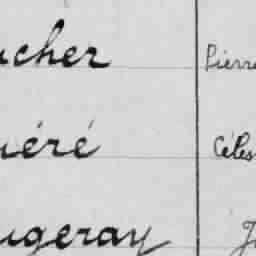 ucher Pierre
uéré Céles
ugeray J